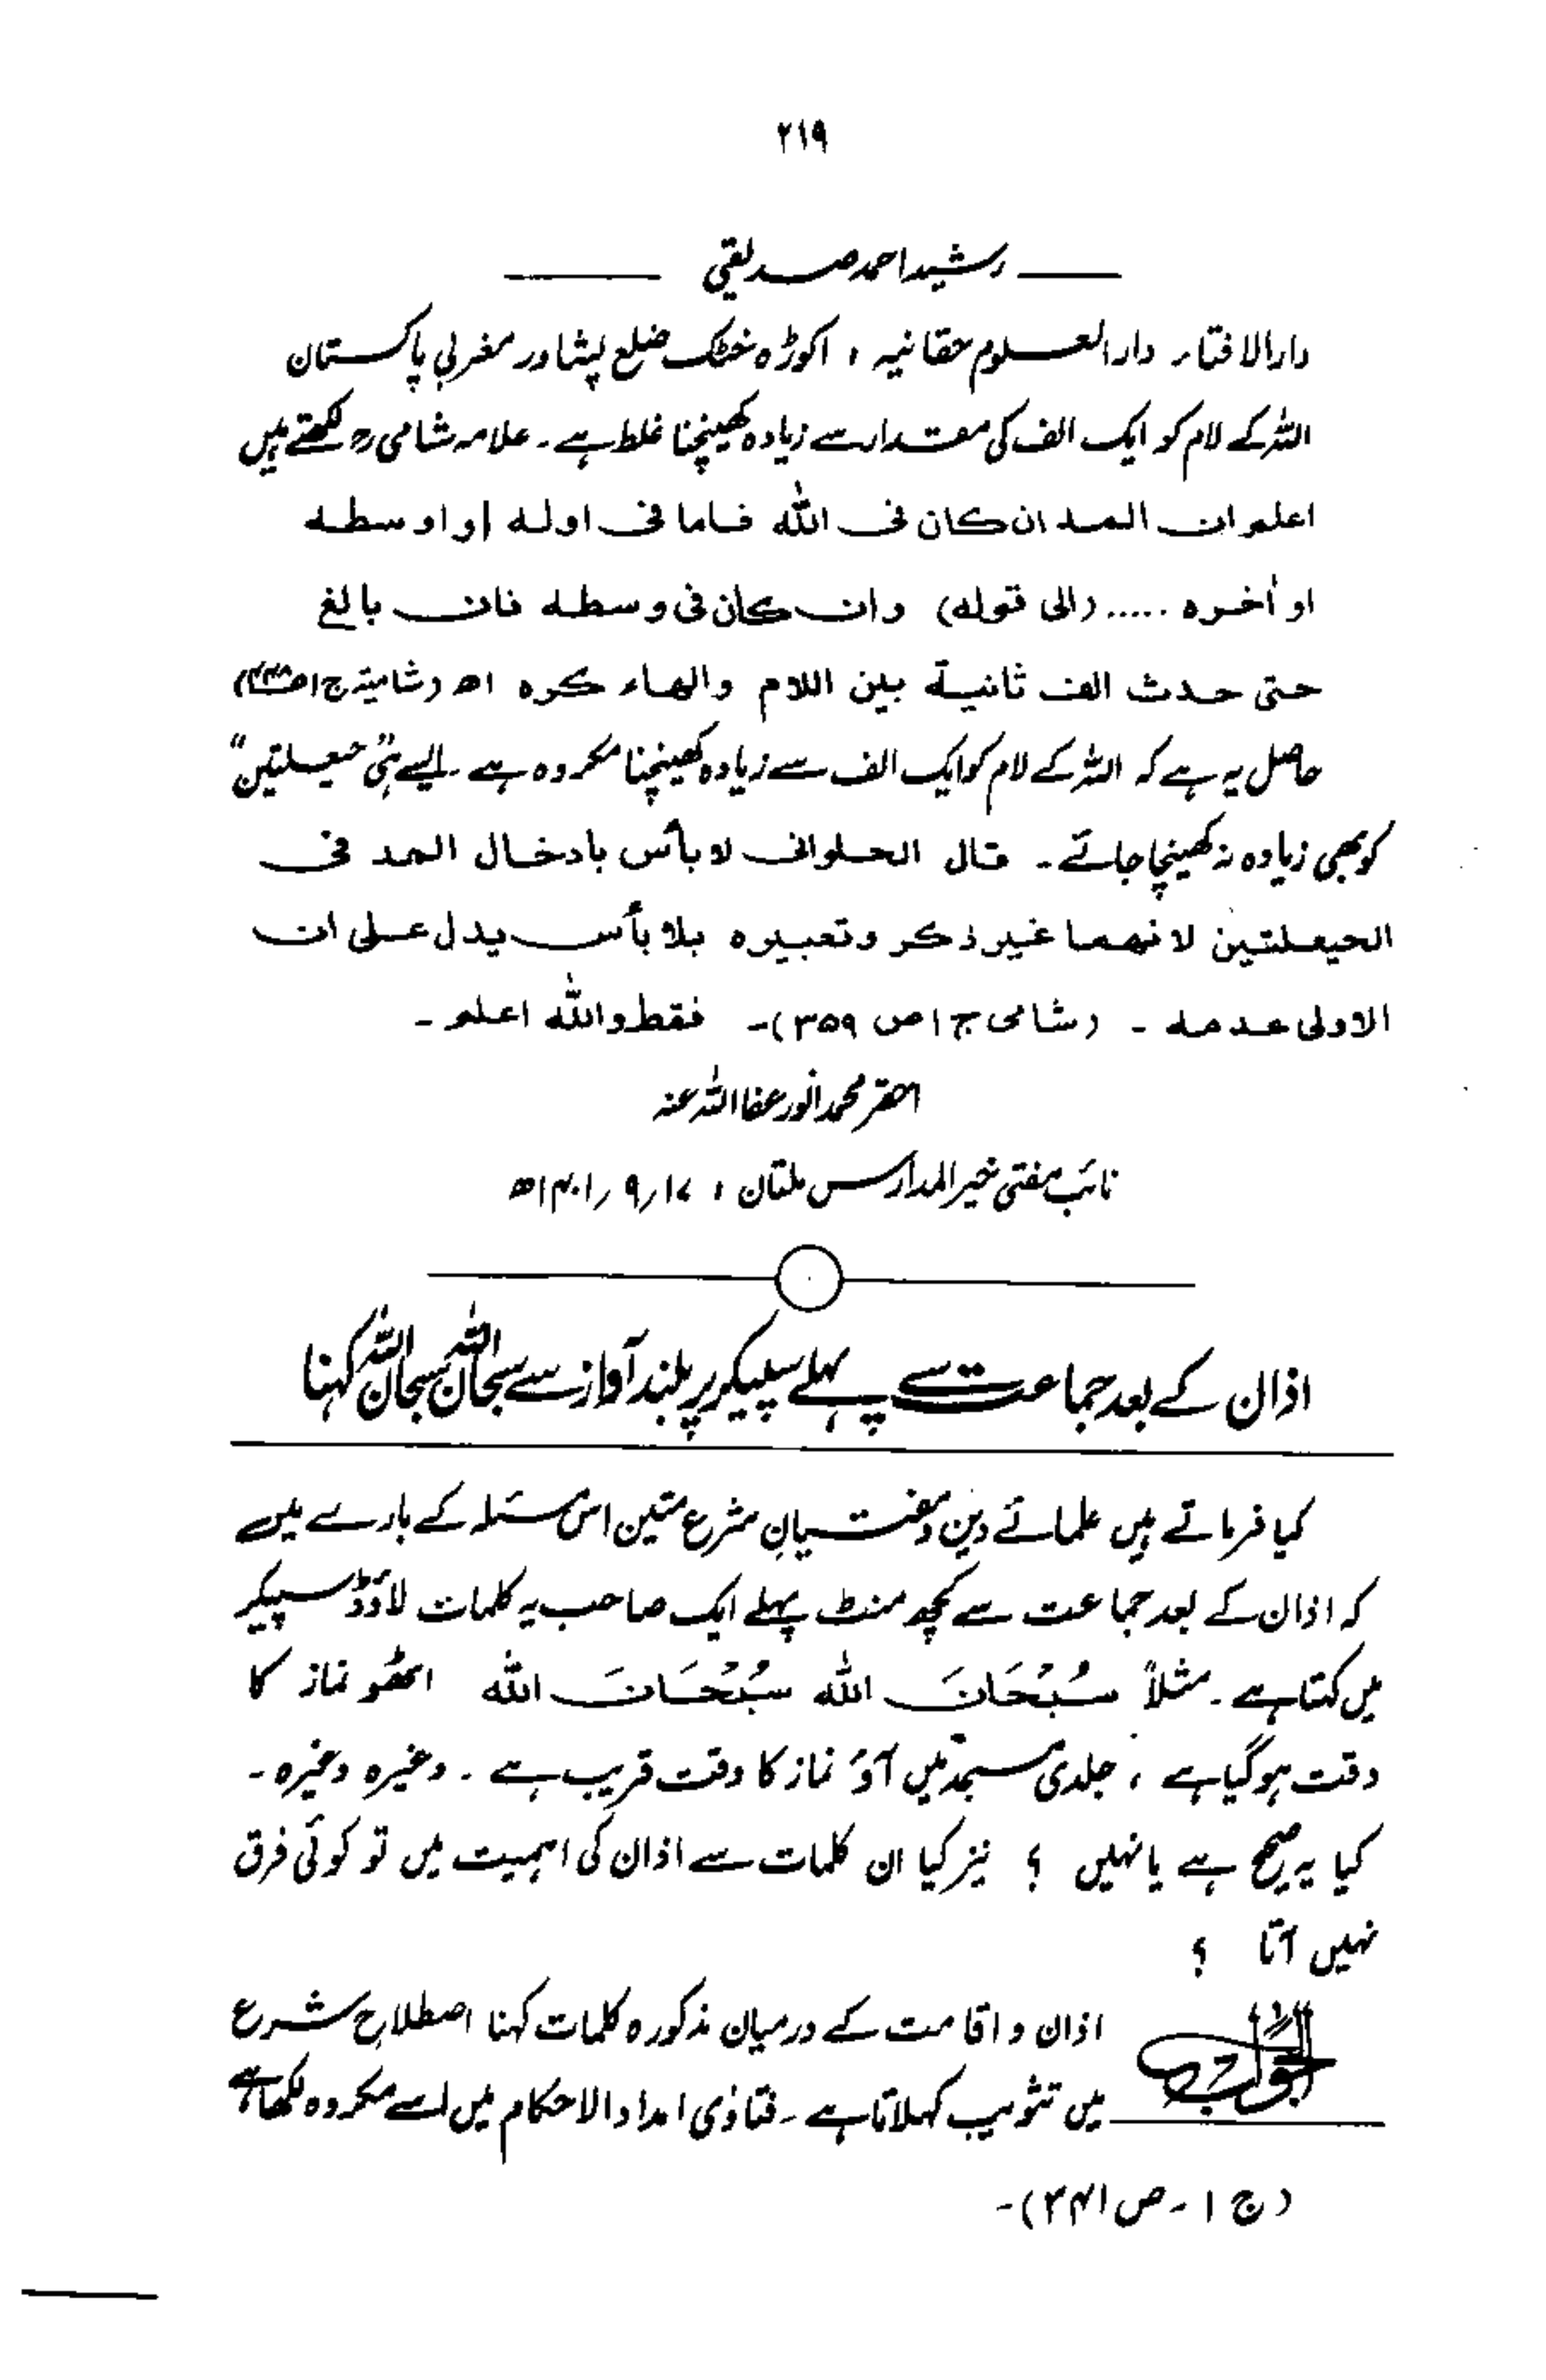 ۲۱۹
رشید احمد صدیقی
دارالافتاء دارالعلوم حقانیہ ، اکوڑہ خٹک ضلع پشاور مغربی پاکستان
اللہ کے لام کو ایک الف کی مقدار سے زیادہ کھینچنا غلط ہے ۔ علامہ شامی رح لکھتے ہیں
اعلم ان المد ان کان فی اللہ فاما فی اولہ او اوسطہ
او اٰخرہ ..... (الی قولہ) وان کان فی وسطہ فان بالغ
حتی حدث الف ثانیة بین اللام والهاء کرہ اھ (شامیة ج۱ ص)
حاصل یہ ہے کہ اللہ کے لام کو ایک الف سے زیادہ کھینچنا مکروہ ہے ۔ ایسے ہی "حیعلتین"
کو بھی زیادہ نہ کھینچا جائے ۔ قال الحلوانی لا بأس بادخال المد فی
الحیعلتین لانهما غیر ذکر وتعبیرہ بلا بأس یدل علی ان
الاولی عدمہ ۔ (شامی ج ۱ ص ۳۵۹)۔ فقط واللہ اعلم ۔
احقر محمد انور عفا اللہ عنہ
نائب مفتی خیر المدارس ملتان ، ۱۷؍۹؍۱۴۰۱ھ
اذان کے بعد جماعت سے پہلے سپیکر پر بلند آواز سے سبحان اللہ سبحان اللہ کہنا
کیا فرماتے ہیں علمائے دین و مفتیان شرع متین اس مسئلہ کے بارے میں
کہ اذان کے بعد جماعت سے کچھ منٹ پہلے ایک صاحب یہ کلمات لاؤڈ سپیکر
میں کہتا ہے ۔ مثلاً سُبْحَانَ اللہ سُبْحَانَ اللہ اٹھو نماز کا
وقت ہو گیا ہے ، جلدی مسجد میں آؤ نماز کا وقت قریب ہے ۔ وغیرہ وغیرہ ۔
کیا یہ صحیح ہے یا نہیں ؟ نیز کیا ان کلمات سے اذان کی اہمیت میں تو کوئی فرق
نہیں آتا ؟
الجواب اذان و اقامت کے درمیان مذکورہ کلمات کہنا اصطلاح شرع
میں تثویب کہلاتا ہے ۔ فتاوٰی امداد الاحکام میں اسے مکروہ لکھا ہے
(ج ۱ ۔ ص ۳۴۱)۔